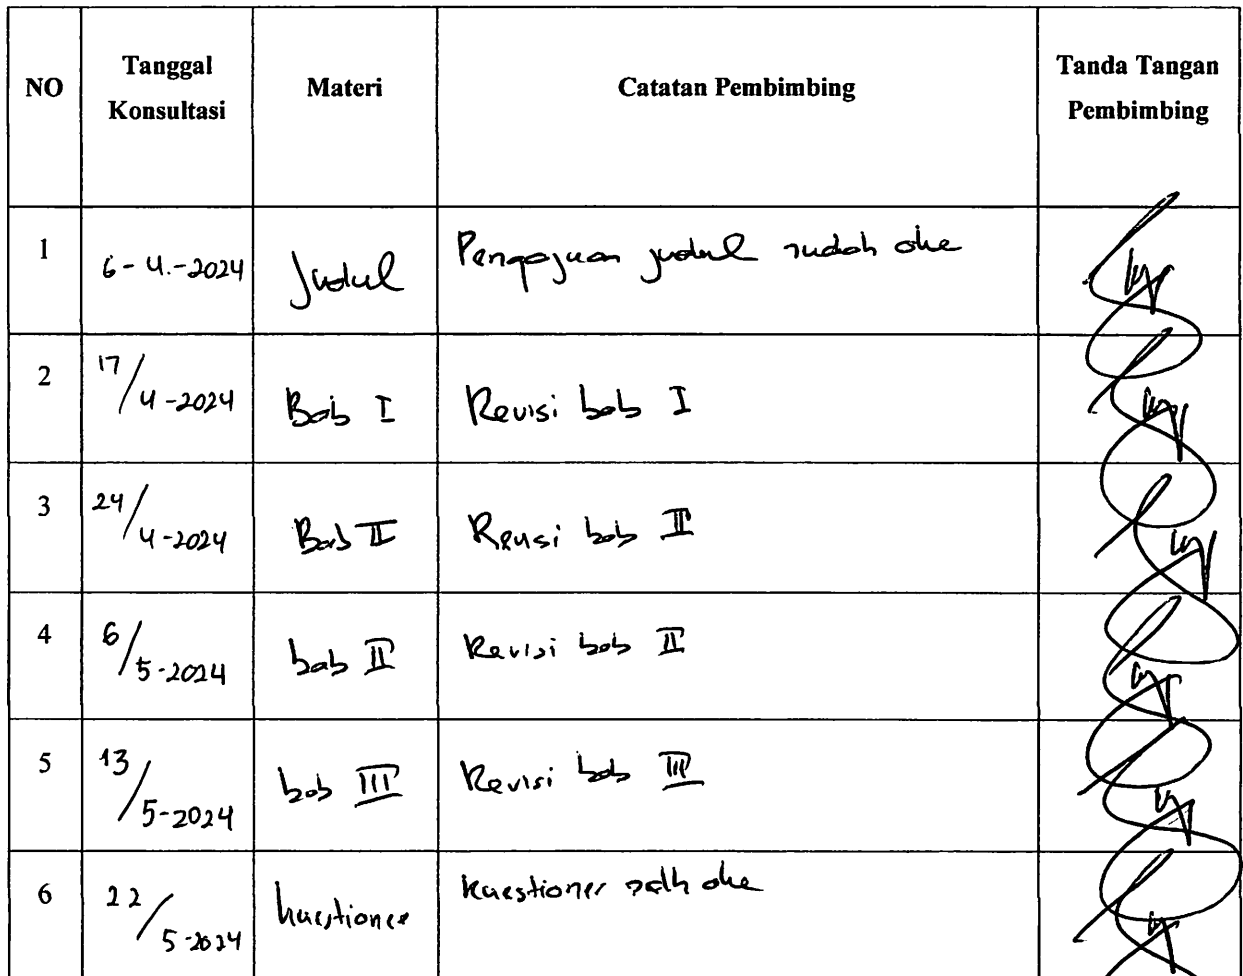 NO Tanggal Konsultasi Materi Catatan Pembimbing Tanda Tangan Pembimbing
1 6-4.-2024 Judul Pengajuan judul sudah oke
2 17/4-2024 Bab I Revisi bab I
3 24/4-2024 Bab II Revisi bab II
4 6/5-2024 bab II Revisi bab II
5 13/5-2024 bab III Revisi bab III
6 22/5-2024 kuestioner kuestioner sdh oke